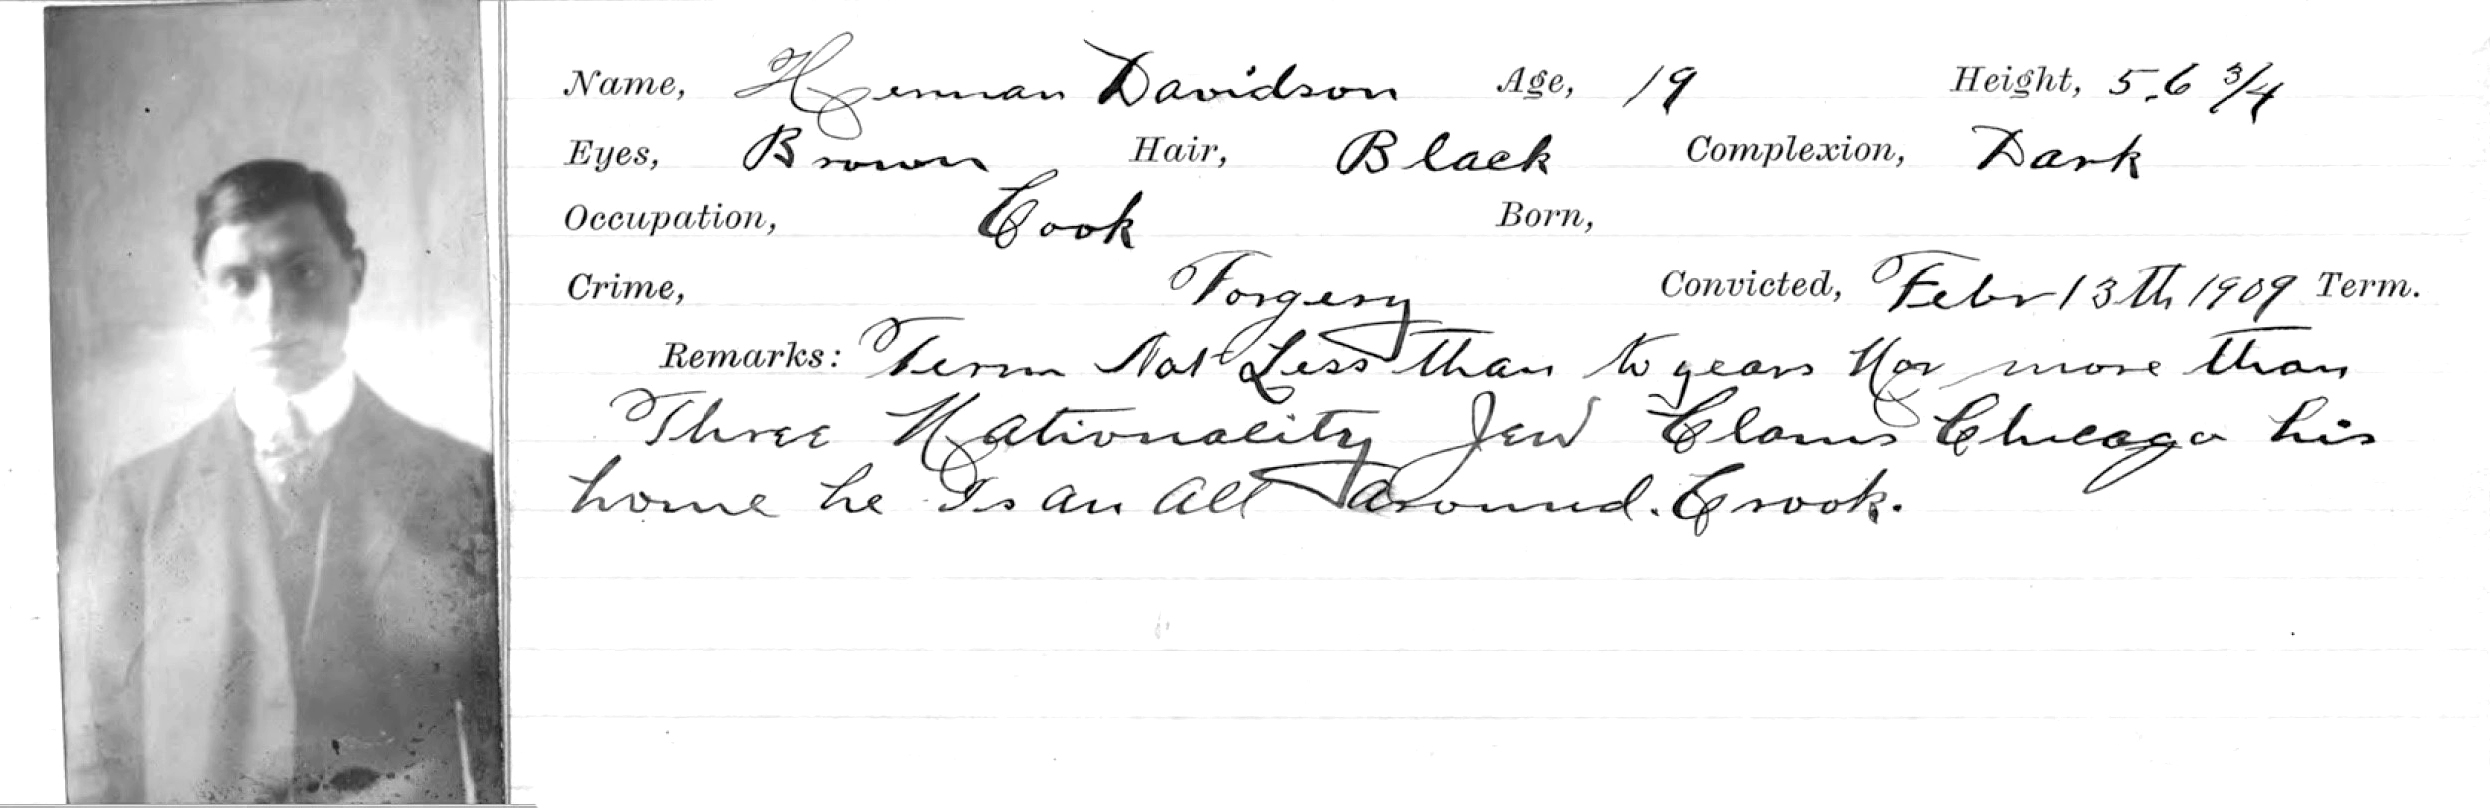 Name, Herman Davidson Age, 19 Height, 5.6 3/4
Eyes, Brown Hair, Black Complexion, Dark
Occupation, Cook Born,
Crime, Forgery Convicted, Febr 13th 1909 Term.
Remarks: Term Not Less than to years Nor more than
Three Nationality Jew Clams Chicago his
home he Is an All Around. Crook.